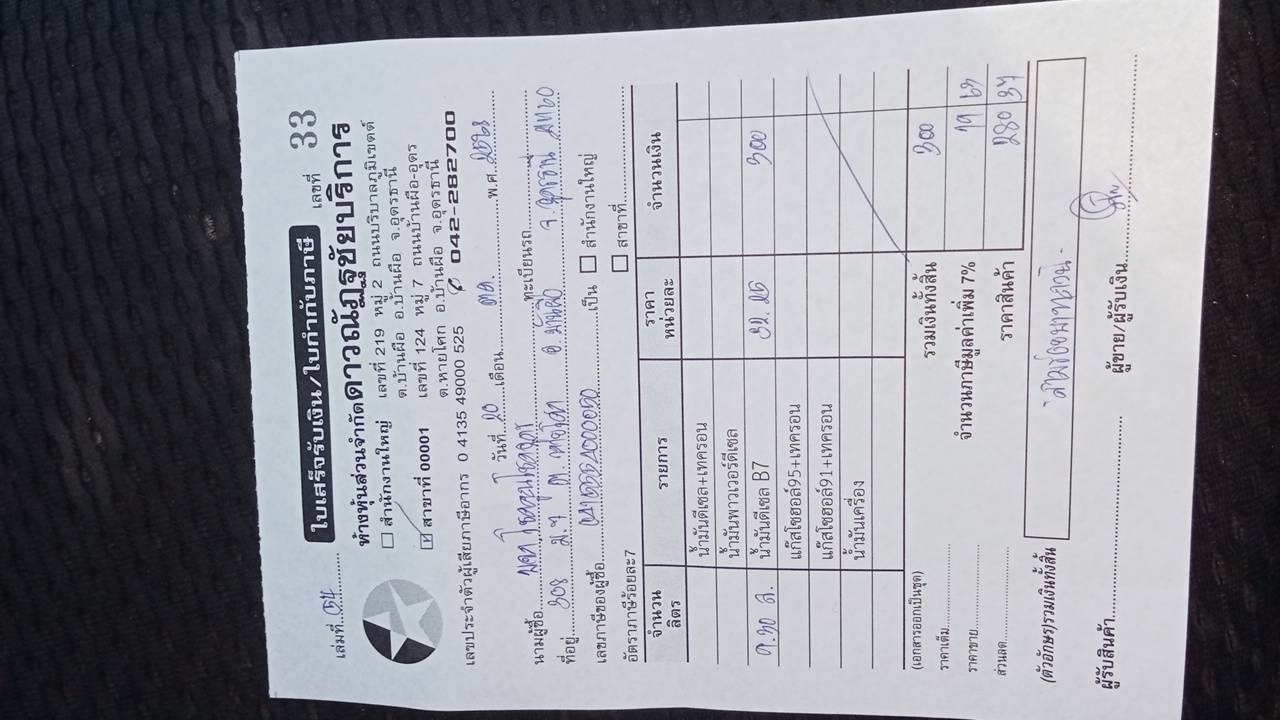 ใบเสร็จรับเงิน/ใบกำกับภาษี
เล่มที่ เลขที่ 33
ห้างหุ้นส่วนจำกัดดาวณัฏฐชัยบริการ
สำนักงานใหญ่ เลขที่ 219 หมู่ 2 ถนนบริบาลภูมิเขตต์
ต.บ้านผือ อ.บ้านผือ จ.อุดรธานี
สาขาที่ 00001 เลขที่ 124 หมู่ 7 ถนนบ้านผือ-อุดร
ต.หายโศก อ.บ้านผือ จ.อุดรธานี
เลขประจำตัวผู้เสียภาษีอากร 0 4135 49000 525 042-282700
วันที่ 20 เดือน ตค. พ.ศ. 2568
นามผู้ซื้อ ทะเบียนรถ
ที่อยู่ 308 ม.7 ต. หายโศก อ. บ้านผือ จ. อุดรธานี 41160
เลขภาษีของผู้ซื้อ เป็น สำนักงานใหญ่
อัตราภาษีร้อยละ7 สาขาที่
จำนวนลิตร รายการ ราคาหน่วยละ จำนวนเงิน
น้ำมันดีเซล+เทครอน
น้ำมันพาวเวอร์ดีเซล
9.30 ล. น้ำมันดีเซล B7 32.25 300
แก๊สโซฮอล์95+เทครอน
แก๊สโซฮอล์91+เทครอน
น้ำมันเครื่อง
(เอกสารออกเป็นชุด) รวมเงินทั้งสิ้น 300
ราคาเต็ม จำนวนภาษีมูลค่าเพิ่ม 7% 19 63
ราคาขาย ราคาสินค้า 280 37
ส่วนลด
(ตัวอักษร)รวมเงินทั้งสิ้น สามร้อยบาทถ้วน
ผู้รับสินค้า ผู้ขาย/ผู้รับเงิน